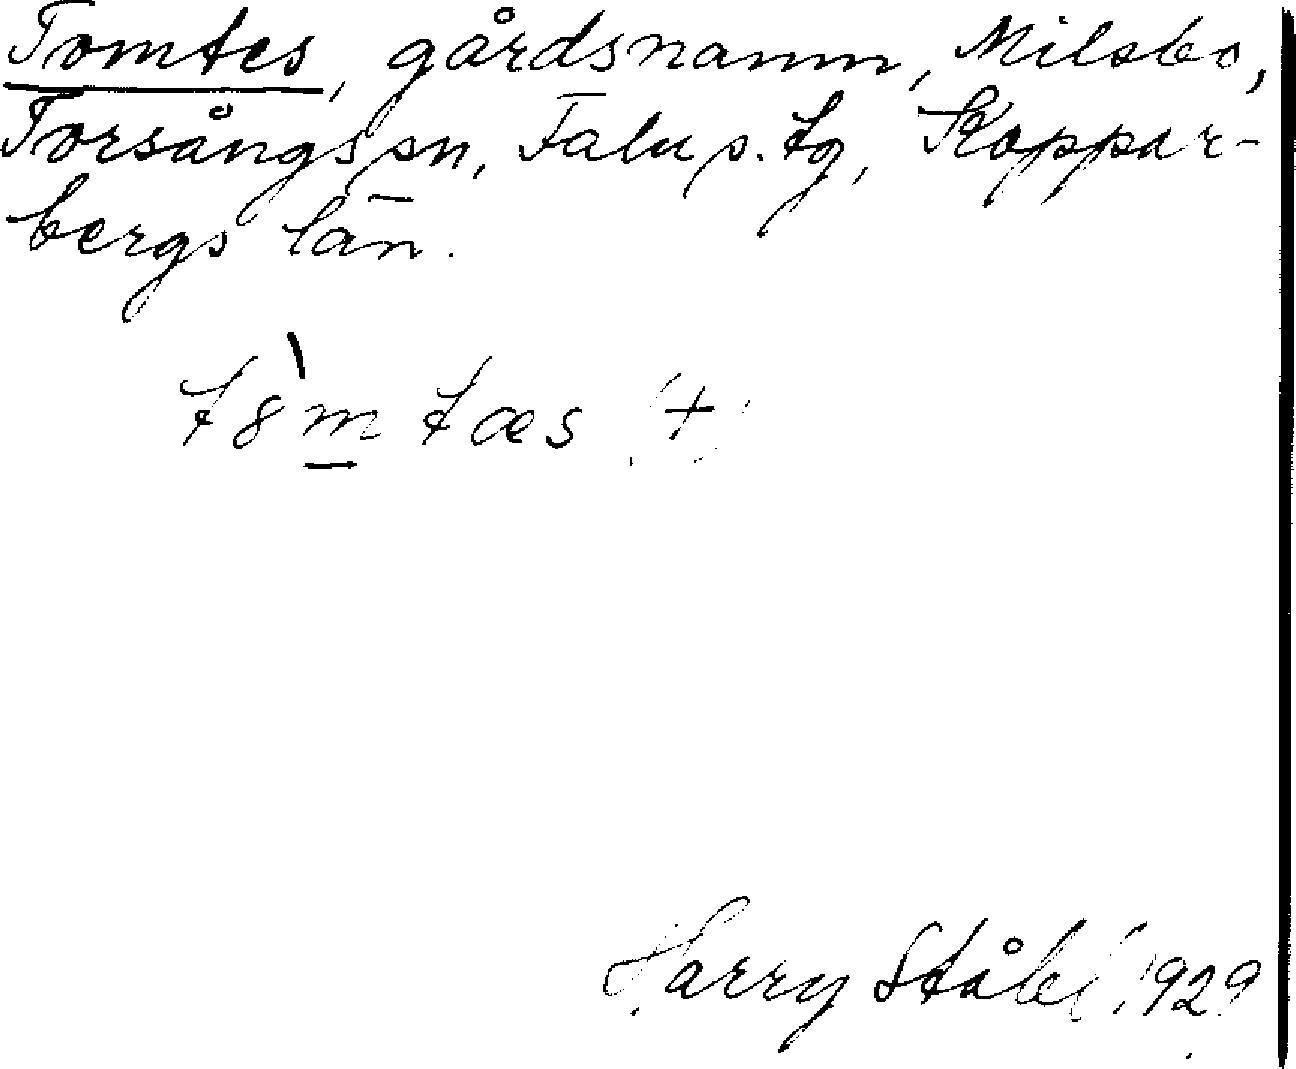 Tomtes, gårdsnamn, Milsbo,
Torsångs sn, Falu s. tg, Koppar-
bergs län.
t8̀m̲tæs (+)
Harry Ståhl 1929